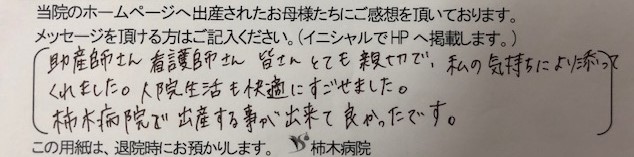 当院のホームページへ出産されたお母様たちにご感想を頂いております。
メッセージを頂ける方はご記入ください。(イニシャルでHPへ掲載します。)
助産師さん 看護師さん 皆さんとても親切で、私の気持ちにより添って
くれました。入院生活も快適にすごせました。
柿木病院で出産する事が出来て良かったです。
この用紙は、退院時にお預かりします。 柿木病院